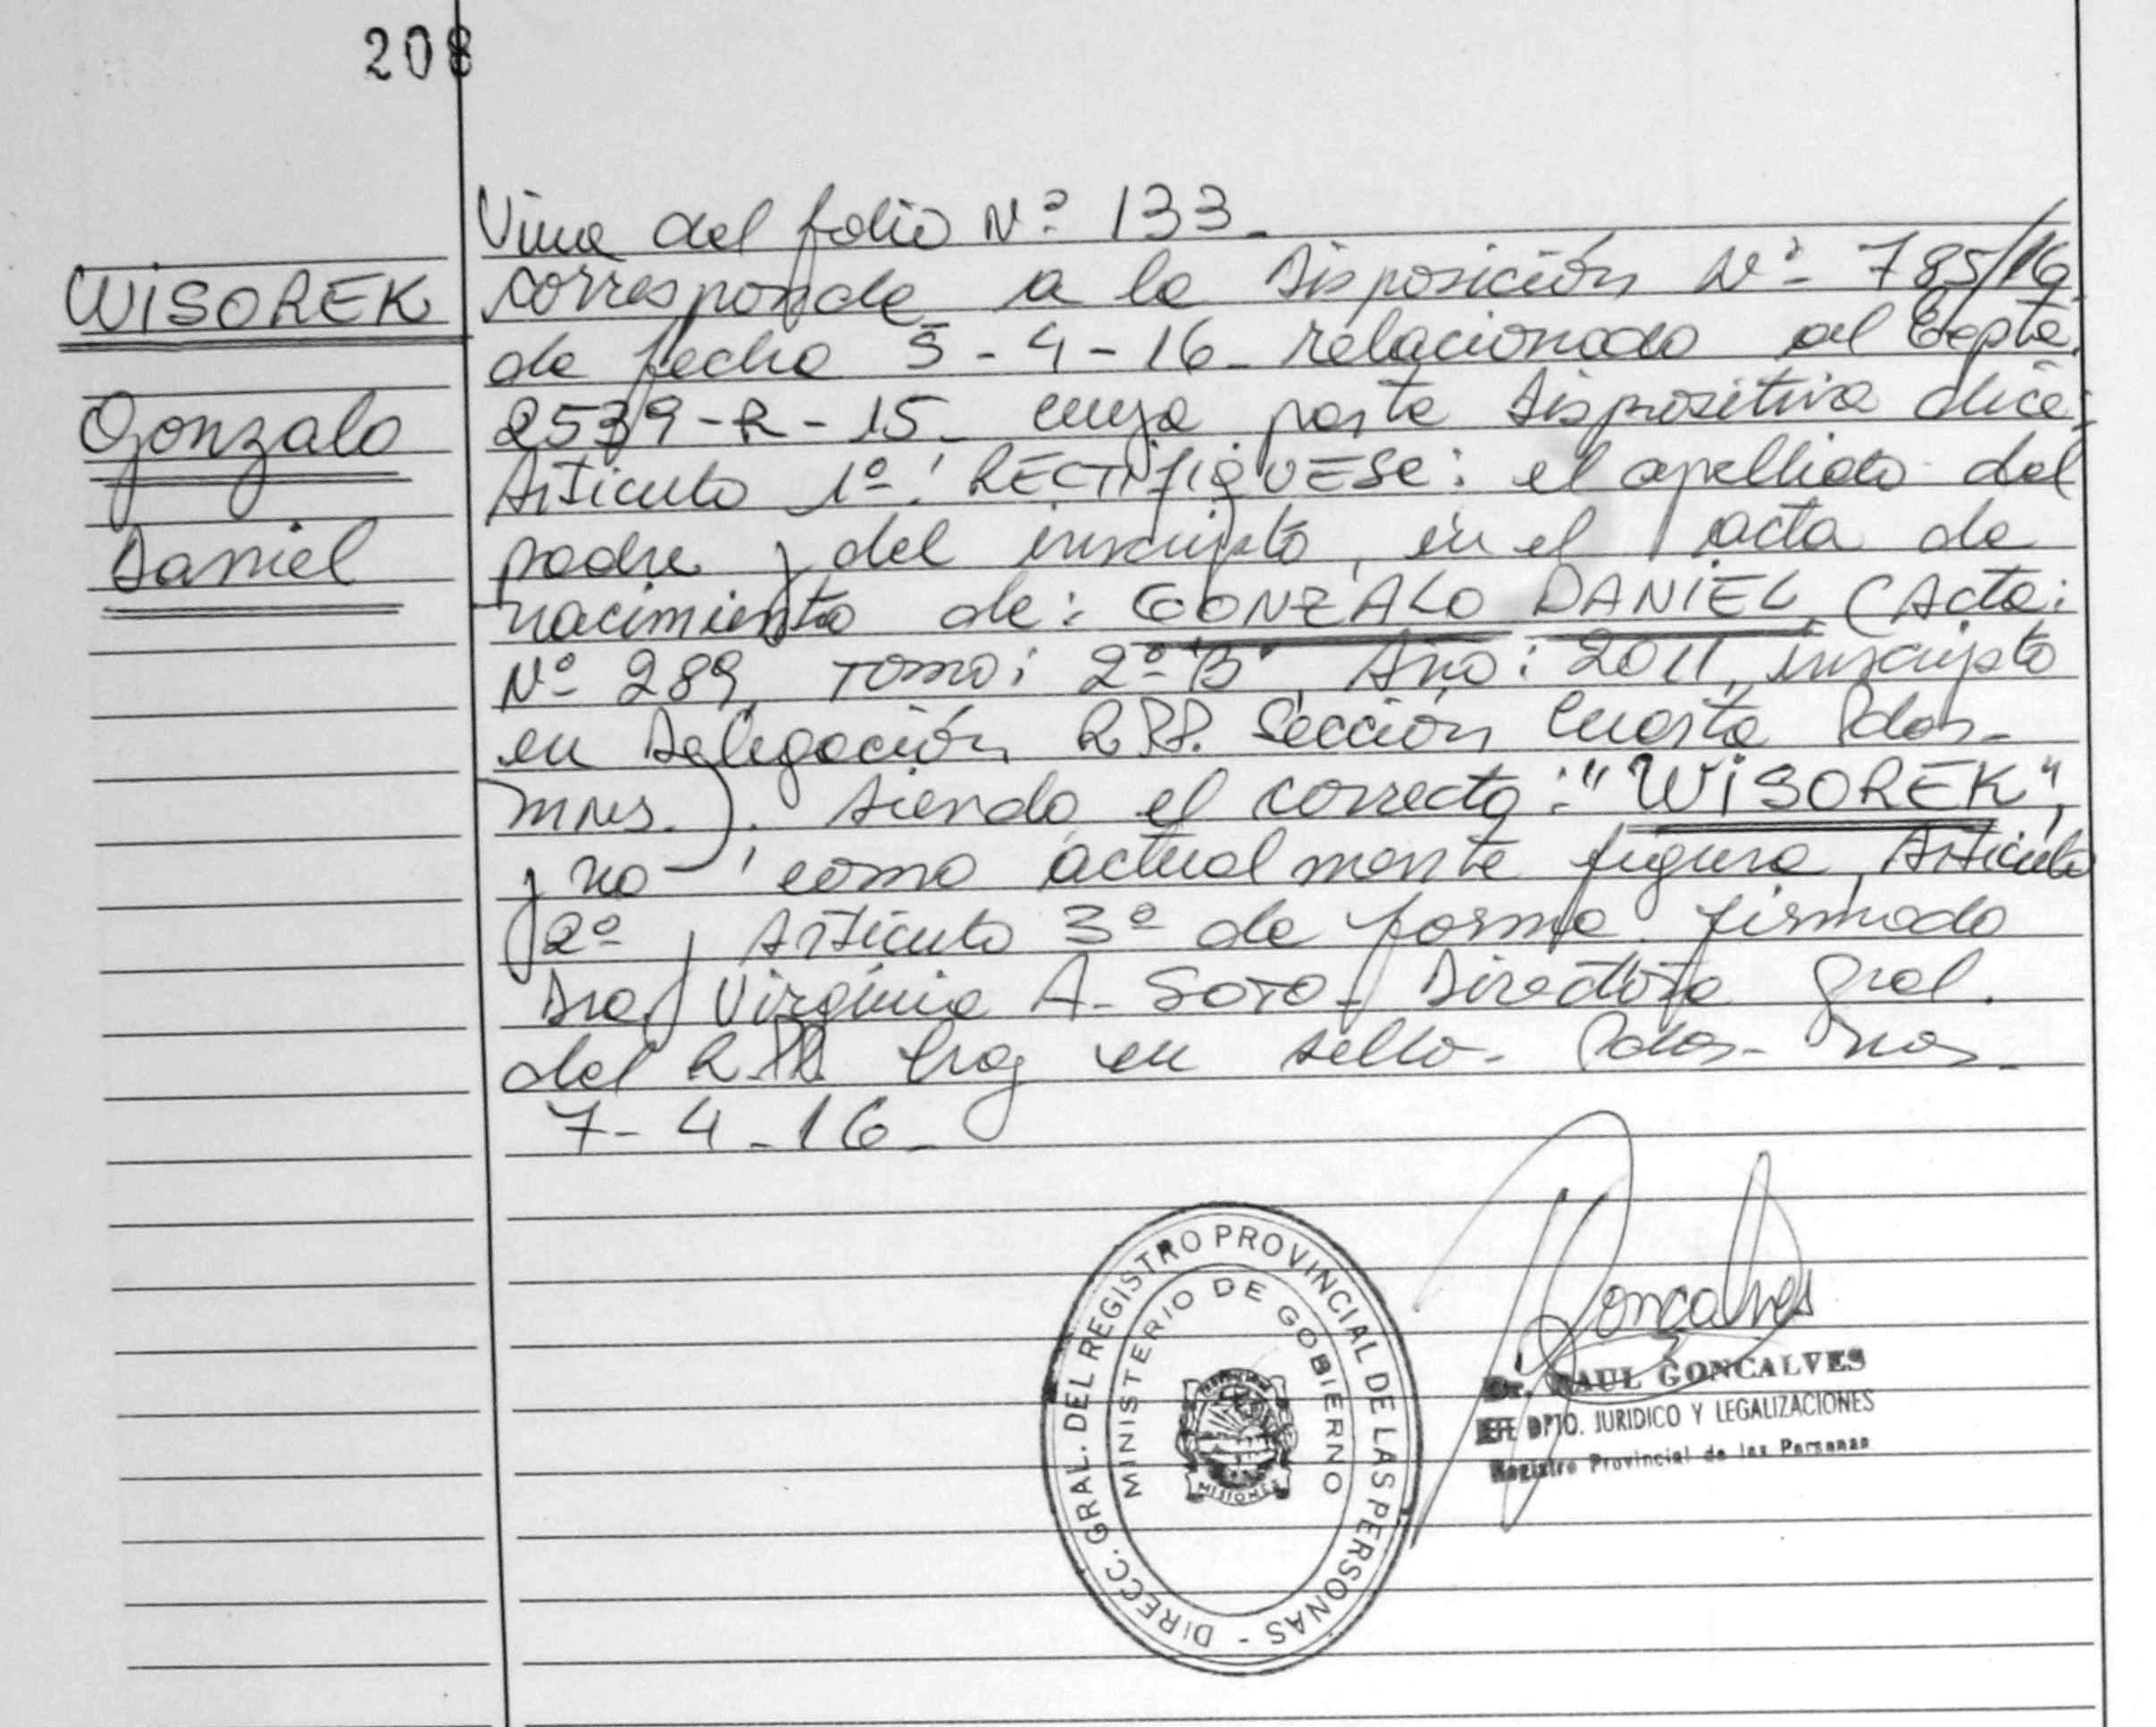 208
WISOREK
Gonzalo
Daniel
Viene del folio Nº 133.
corresponde a la Disposición Nº 785/16
de fecha 5-4-16- relacionado al Expte.
2539-R-15- cuya parte dispositiva dice:
Articulo 1º: RECTIFIQUESE: el apellido del
padre y del inscripto, en el acta de
nacimiento de: GONZALO DANIEL (Acta:
Nº 289, Tomo: 2º "B" Año: 2011, inscripto
en Delegación R.P.P. Sección Cuarta Pdas-
mnes.). siendo el correcto: "WISOREK",
y no como actualmente figura, Articulo
2º y Articulo 3º de forma. firmado
Dra. Virginia A. Soto- Directora Gral.
del R.P.P. hay un sello- Pdas- mnes-
7-4-16-
DIRECC. GRAL. DEL REGISTRO PROVINCIAL DE LAS PERSONAS -
MINISTERIO DE GOBIERNO
MISIONES
Goncalves
Dr. RAUL GONCALVES
JEFE DPTO. JURIDICO Y LEGALIZACIONES
Registro Provincial de las Personas